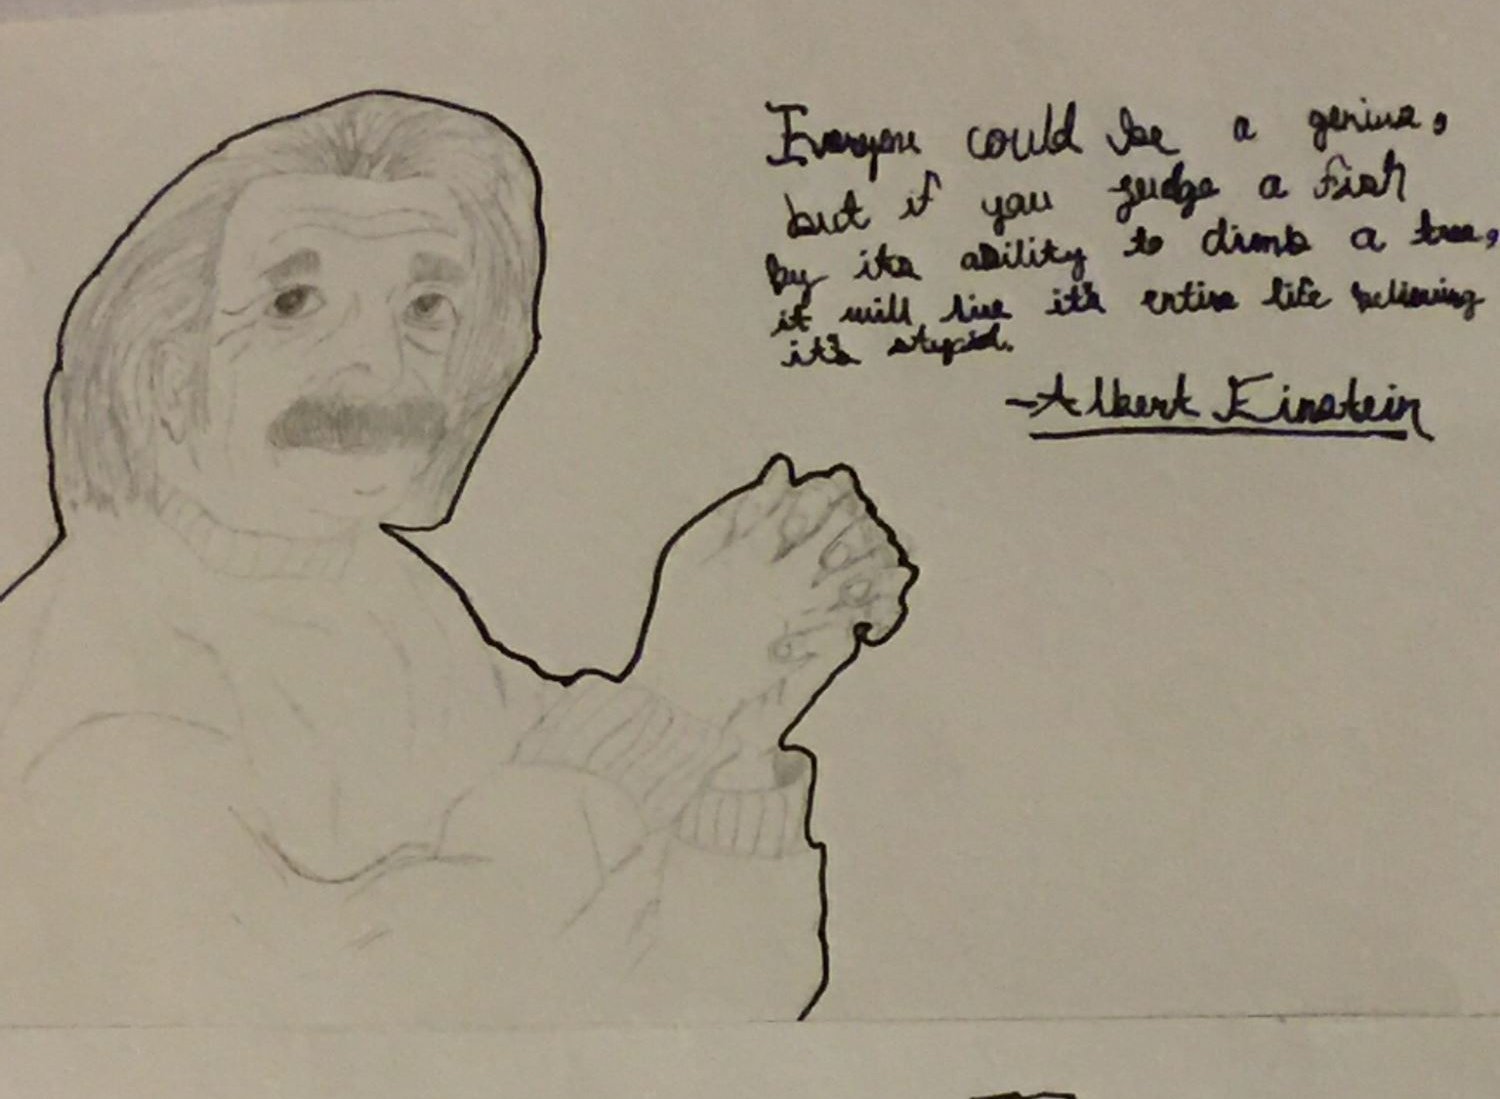 Everyone could be a genius,
but if you judge a fish
by its ability to climb a tree,
it will live it's entire life believing
it's stupid.
-Albert Einstein